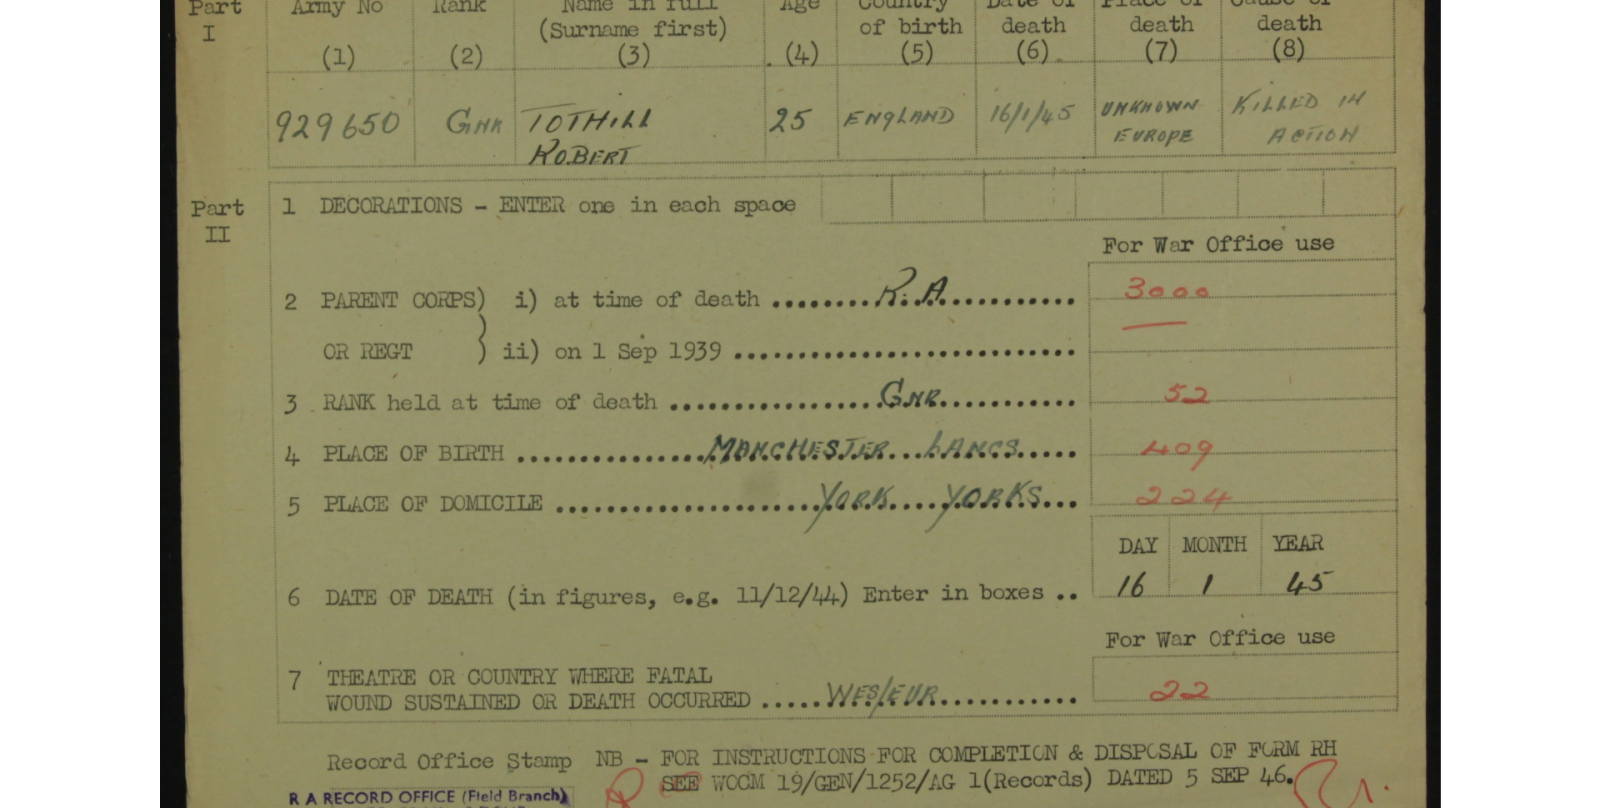 Part Army No Rank Name in full Age Country Date of Place of Cause of
I (Surname first) of birth death death death
(1) (2) (3) (4) (5) (6) (7) (8)
929650 GNR TOTHILL 25 ENGLAND 16/1/45 UNKNOWN KILLED IN
ROBERT EUROPE ACTION
Part 1 DECORATIONS - ENTER one in each space
II
For War Office use
2 PARENT CORPS) i) at time of death ........R.A............ 3000
OR REGT ) ii) on 1 Sep 1939 ..............................
3 RANK held at time of death ..................GNR............ 52
4 PLACE OF BIRTH ................MANCHESTER...LANCS..... 409
5 PLACE OF DOMICILE ......................YORK....YORKS... 224
DAY MONTH YEAR
6 DATE OF DEATH (in figures, e.g. 11/12/44) Enter in boxes .. 16 1 45
For War Office use
7 THEATRE OR COUNTRY WHERE FATAL
WOUND SUSTAINED OR DEATH OCCURRED .....WES/EUR............ 22
Record Office Stamp NB - FOR INSTRUCTIONS FOR COMPLETION & DISPOSAL OF FORM RH
SEE WOCM 19/GEN/1252/AG 1(Records) DATED 5 SEP 46.
R A RECORD OFFICE (Field Branch)